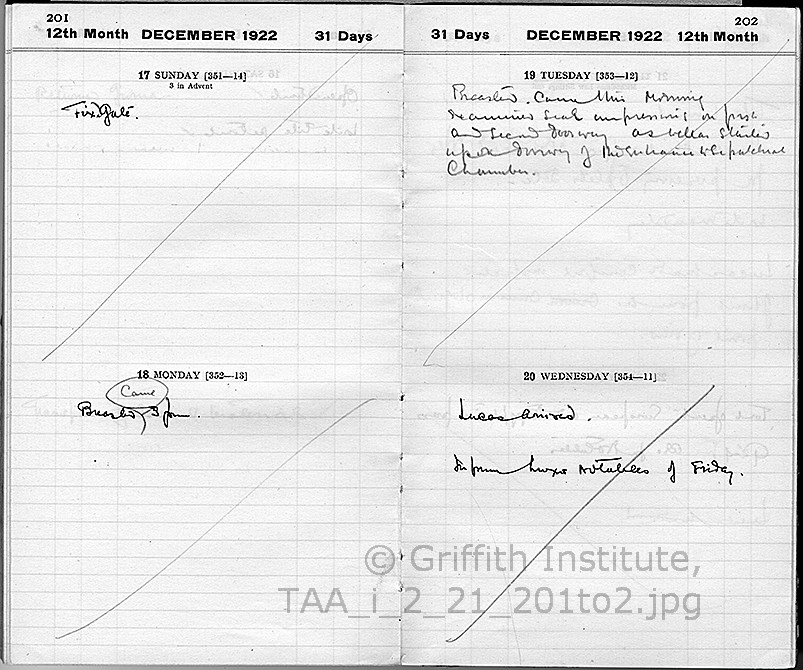 201
12th Month DECEMBER 1922 31 Days
17 SUNDAY [351—14]
3 in Advent
Fixd Gate.
18 MONDAY [352—13]
Came
Breasted 3 pm.
202
31 Days DECEMBER 1922 12th Month
19 TUESDAY [353—12]
Breasted. Came this Morning
examined seal impressions on first
and Second doorway as well as
upon doorway of the entrance to Sepulchral
Chamber.
20 WEDNESDAY [354—11]
Lucas arrived.
Inform Luxor Notables of Friday.
© Griffith Institute,
TAA_i_2_21_201to2.jpg